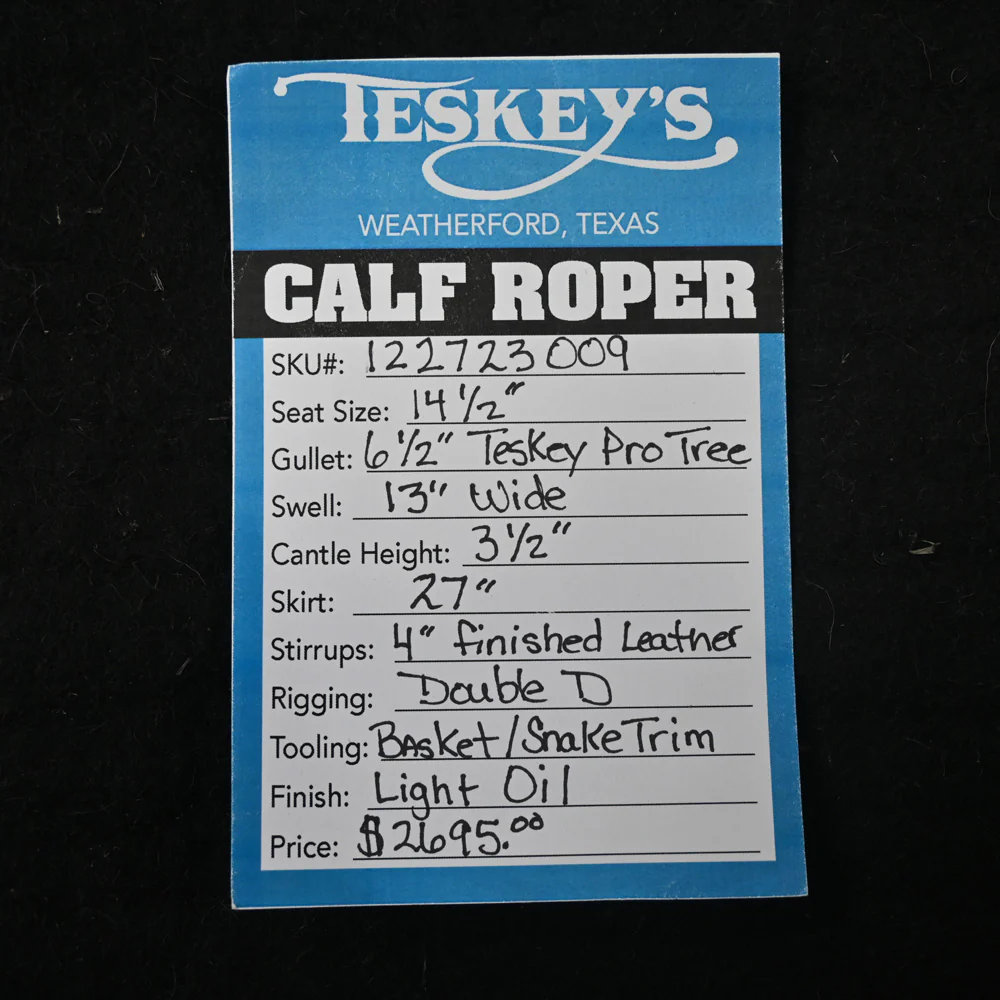 TESKEY'S
WEATHERFORD, TEXAS
CALF ROPER
SKU#: 122723009
Seat Size: 14 1/2"
Gullet: 6 1/2" Teskey Pro Tree
Swell: 13" Wide
Cantle Height: 3 1/2"
Skirt: 27"
Stirrups: 4" finished Leather
Rigging: Double D
Tooling: Basket/Snake Trim
Finish: Light Oil
Price: $2695.00